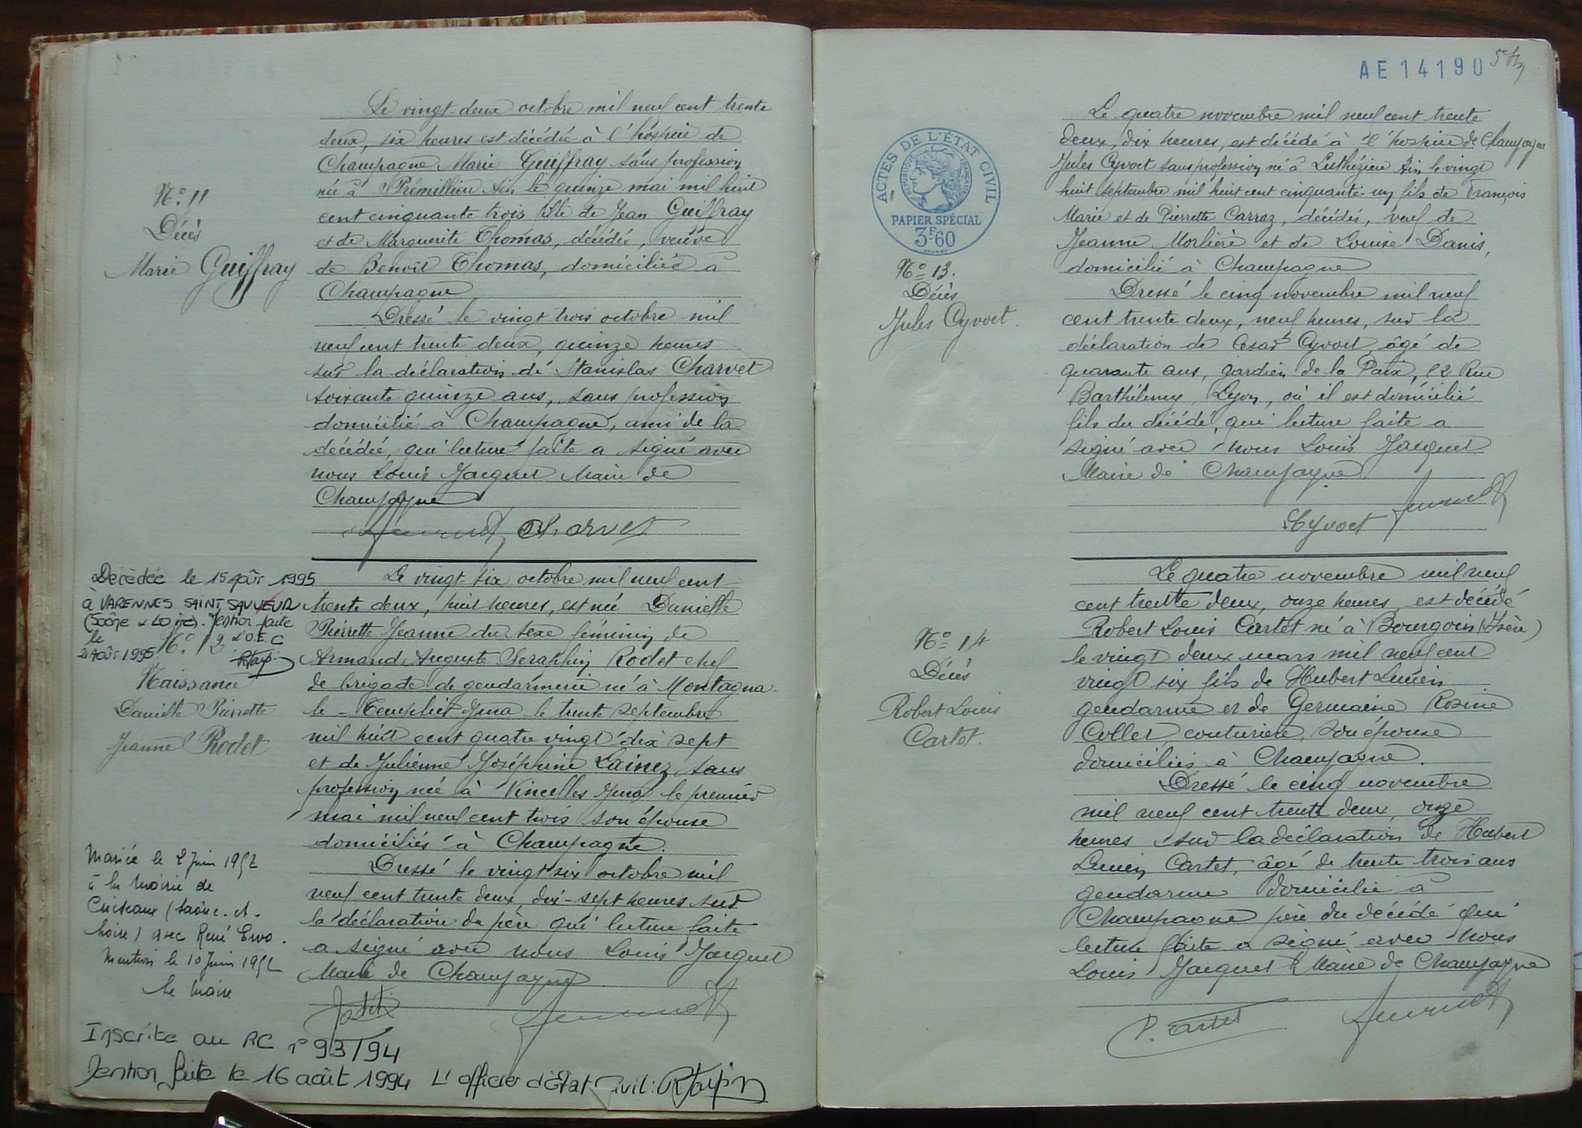 Le vingt deux octobre mil neuf cent trente
deux, six heures est décédée à l'hospice de
Champagne Marie Guiffray sans profession
née à Prémillieu Ain le quinze mai mil huit
cent cinquante trois fille de Jean Guiffray
et de Marguerite Thomas, décédés, veuve
de Benoit Thomas, domiciliée à
Champagne
N° 11
Décès
Marie Guiffray
Dressé le vingt trois octobre mil
neuf cent trente deux, quinze heures
sur la déclaration de Stanislas Charvet
soixante quinze ans, sans profession
domicilié à Champagne, ami de la
décédée, qui lecture faite a signé avec
nous Louis Jacquet Maire de
Champagne
Charvet
Décédée le 15 août 1995
à VARENNES SAINT SAUVEUR
(Saône & Loire). Mention faite
le
21 août 1995 N° 12 d'O.E.C
Naissance
Danielle Pierrette
Jeanne Rodet
Le vingt six octobre mil neuf cent
trente deux, huit heures, est née Danielle
Pierrette Jeanne du sexe féminin de
Armand Auguste Séraphin Rodet chef
de brigade de gendarmerie né à Montagna
le-Templier Jura le trente septembre
mil huit cent quatre vingt dix sept
et de Julienne Joséphine Lainez, sans
profession née à Vincelles Jura le premier
mai mil neuf cent trois son épouse
domiciliés à Champagne.
Dressé le vingt six octobre mil
neuf cent trente deux, dix-sept heures sur
la déclaration du père qui lecture faite
a signé avec nous Louis Jacquet
Maire de Champagne
Mariée le 2 Juin 1952
à la Mairie de
Cuiseaux (Saône-et-
Loire) avec René
Mention le 10 Juin 1952
le Maire
Inscrite au RC n° 93/94
Mention faite le 16 août 1994 L'officier d'État Civil:
AE 14190
ACTES DE L'ÉTAT CIVIL
PAPIER SPÉCIAL
3F60
Le quatre novembre mil neuf cent trente
deux, dix heures, est décédé à l'hospice de Champagne
Jules Cyvoct sans profession né à Luthézieu Ain le vingt
huit septembre mil huit cent cinquante-un fils de François
Marie et de Pierrette Carraz, décédés, veuf de
Jeanne Morlière et de Louise Danis,
domicilié à Champagne
N° 13.
Décès
Jules Cyvoct.
Dressé le cinq novembre mil neuf
cent trente deux, neuf heures, sur la
déclaration de Cesar Cyvoct âgé de
quarante ans, gardien de la Paix, 12 Rue
Barthélemy, Lyon, où il est domicilié
fils du décédé, qui lecture faite a
signé avec nous Louis Jacquet
Maire de Champagne
Cyvoct
N° 14
Décès
Robert Louis
Cartet.
Le quatre novembre mil neuf
cent trente deux, onze heures est décédé
Robert Louis Cartet né à Bourgoin (Isère)
le vingt deux mars mil neuf cent
vingt six fils de Hubert Lucien
gendarme et de Germaine Rosine
Collet couturière, son épouse
domiciliés à Champagne.
Dressé le cinq novembre
mil neuf cent trente deux, onze
heures sur la déclaration de Hubert
Lucien Cartet, âgé de trente trois ans
gendarme domicilié à
Champagne père du décédé qui
lecture faite a signé avec nous
Louis Jacquet Maire de Champagne
Cartet